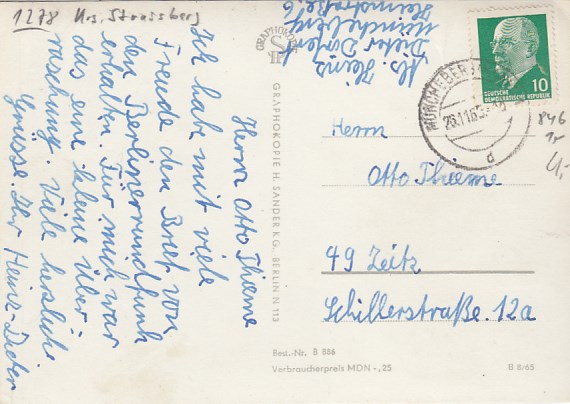 1278 Krs. Strassberg
Herrn Otto Thieme
Ich habe mit viele
Freude den Brief von
den Berlinerrundfunk
erhalten. Für mich war
das eine kleine über-
raschung. Viele herzliche
Grüsse. Ihr Heinz-Dieter
Abs. Heinz
Dieter
Müncheberg
GRAPHOKOPIE
GRAPHOKOPIE H. SANDER KG. BERLIN N 113
MÜNCHEBERG
26.11.65
1
d
10
DEUTSCHE
DEMOKRATISCHE REPUBLIK
846
4,-
Herrn
Otto Thieme
49 Zeitz
Schillerstraße 12a
Best.-Nr. B 886
Verbraucherpreis MDN -,25
B 8/65